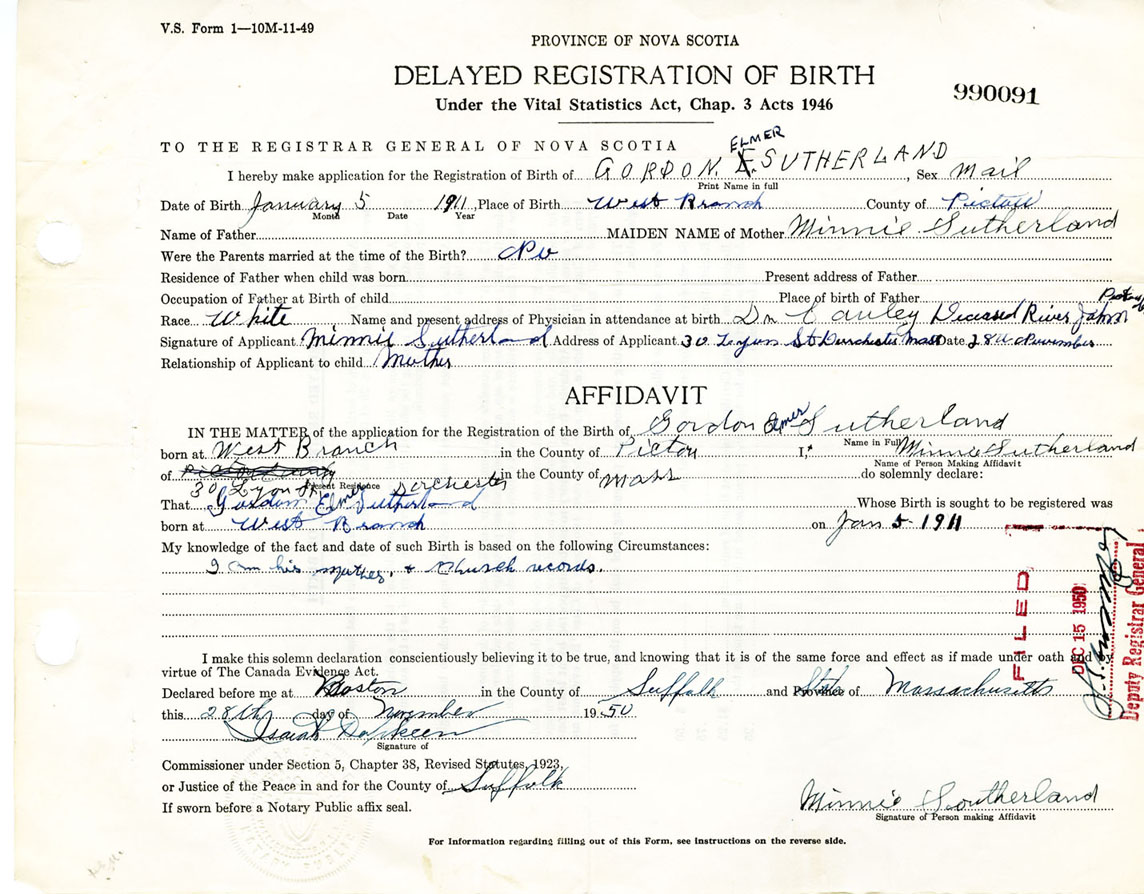 V.S. Form 1—10M-11-49
PROVINCE OF NOVA SCOTIA
DELAYED REGISTRATION OF BIRTH
990091
Under the Vital Statistics Act, Chap. 3 Acts 1946
TO THE REGISTRAR GENERAL OF NOVA SCOTIA
ELMER
I hereby make application for the Registration of Birth of GORDON. E. SUTHERLAND, Sex Mail
Print Name in full
Date of Birth January 5 1911, Place of Birth West Branch County of Pictou
Month Date Year
Name of Father MAIDEN NAME of Mother Minnie Sutherland
Were the Parents married at the time of the Birth? No
Residence of Father when child was born Present address of Father
Occupation of Father at Birth of child Place of birth of Father
Race White Name and present address of Physician in attendance at birth Dr Deceased River John
Signature of Applicant Minnie Sutherland Address of Applicant 30 Lyon St Dorchester Mass Date 28th November
Relationship of Applicant to child Mother
AFFIDAVIT
IN THE MATTER of the application for the Registration of the Birth of Gordon Elmer Sutherland
Name in Full
born at West Branch in the County of Pictou I,* Minnie Sutherland
Name of Person Making Affidavit
of in the County of Mass do solemnly declare:
30 Lyon St Dorchester
Present Residence
That Gordon Elmer Sutherland Whose Birth is sought to be registered was
born at West Branch on Jan 5 - 1911
My knowledge of the fact and date of such Birth is based on the following Circumstances:
I am his mother, + Church records.
FILED
DEC 15 1950
Deputy Registrar General
I make this solemn declaration conscientiously believing it to be true, and knowing that it is of the same force and effect as if made under oath and by
virtue of The Canada Evidence Act.
Declared before me at Boston in the County of Suffolk and Province of Massachusetts
this 28th day of November 1950
Signature of
Commissioner under Section 5, Chapter 38, Revised Statutes, 1923,
or Justice of the Peace in and for the County of Suffolk
If sworn before a Notary Public affix seal.
Minnie Southerland
Signature of Person making Affidavit
For Information regarding filling out of this Form, see instructions on the reverse side.